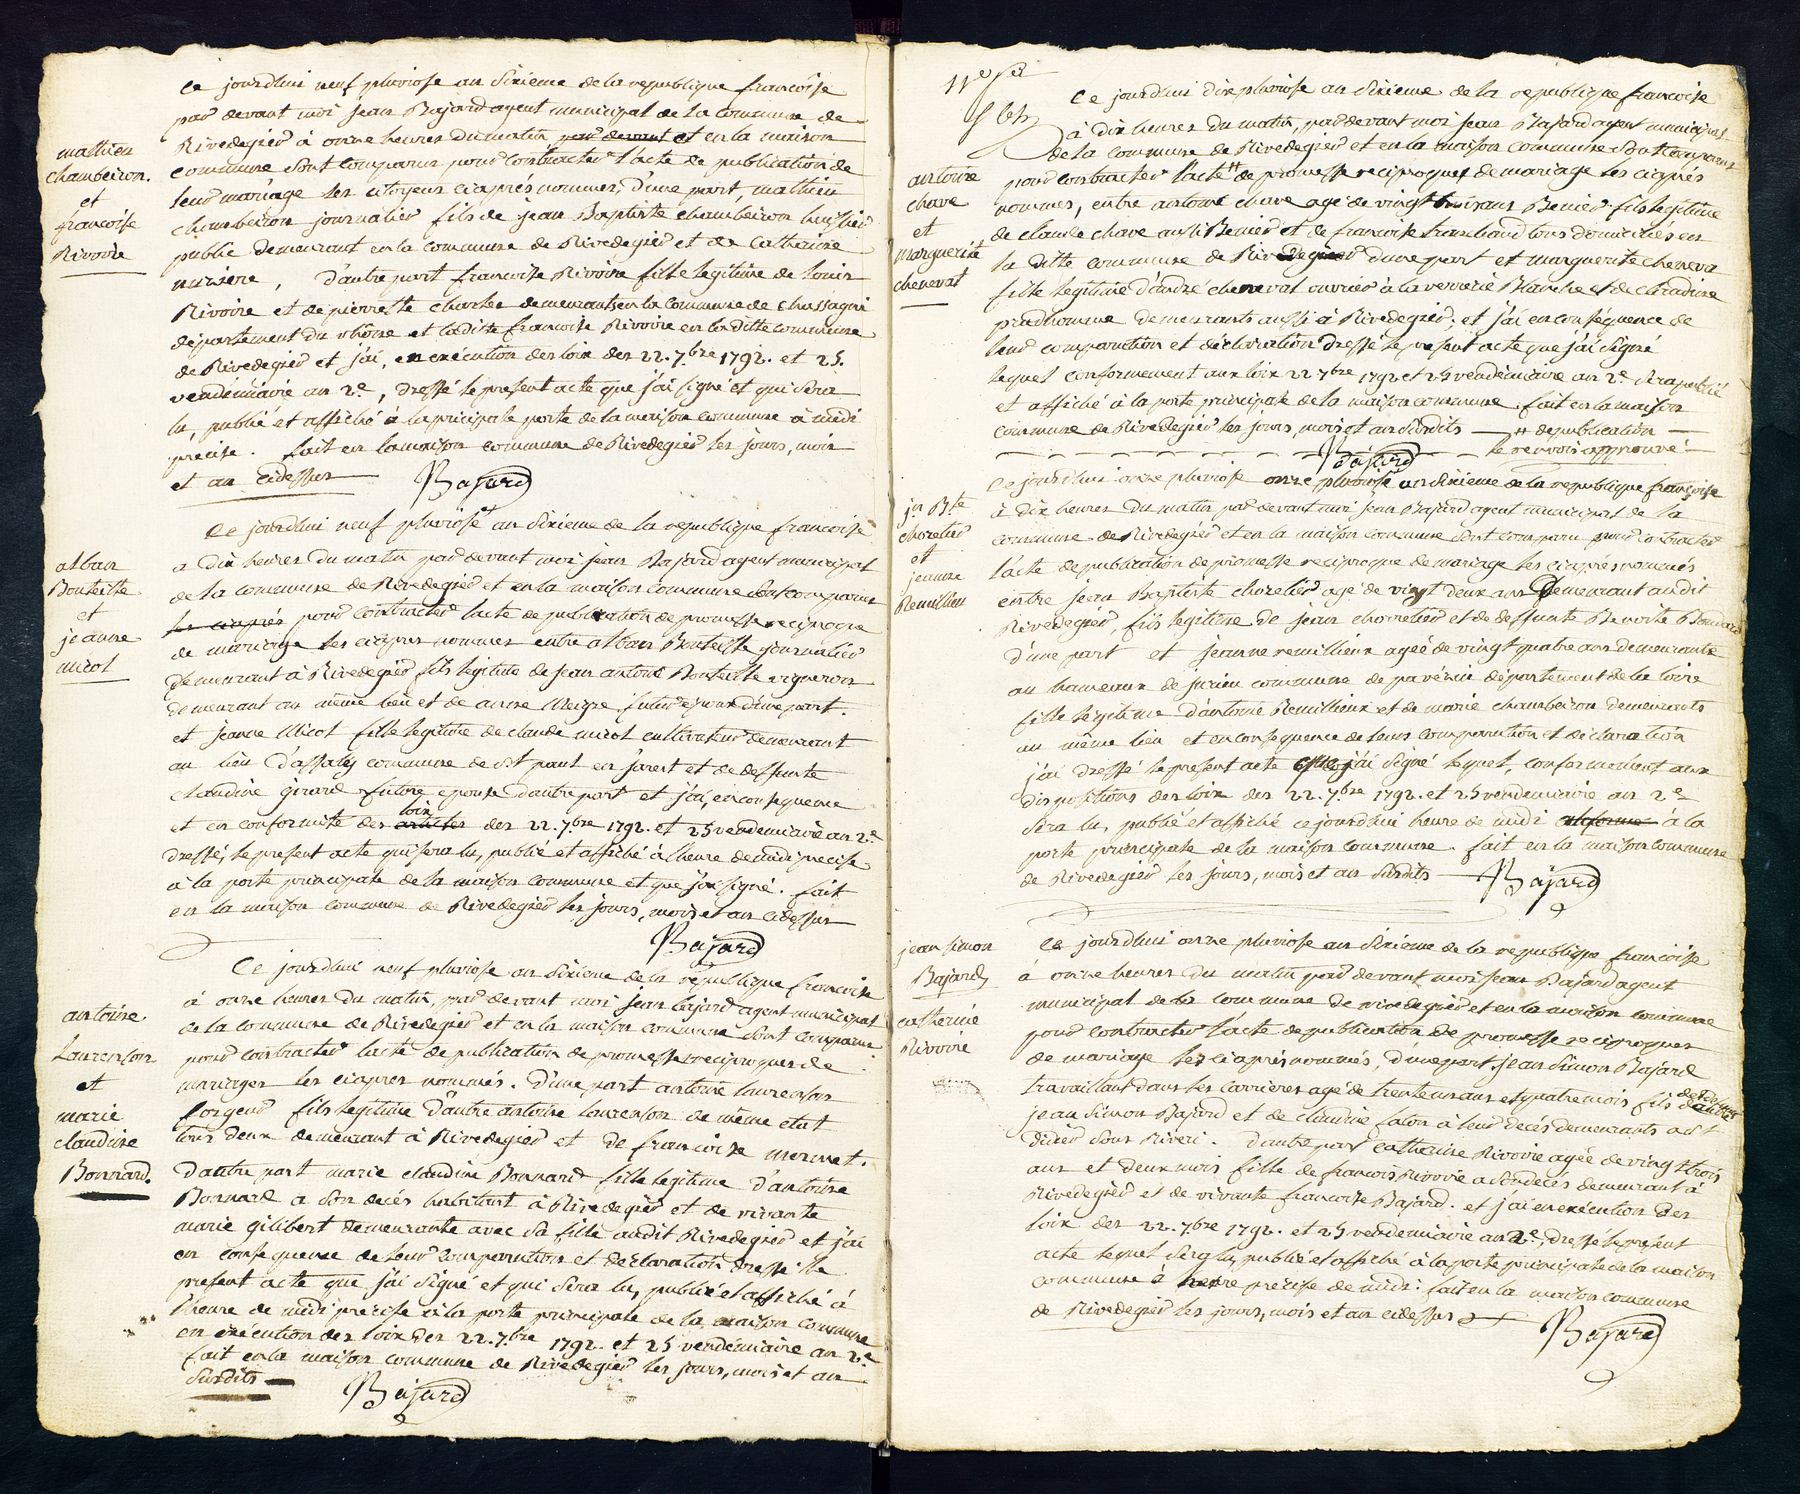 mathieu
chambeiron.
et
francoise
Rivoire
Ce jourdhui neuf pluviose an sixieme de la republique francoise
par devant moi jean Bajard agent municipal de la commune de
Rivedegier à onze heures du matin par devant et en la maison
commune sont comparus pour contracter l'acte de publication de
leur mariage les citoyens ciaprés nommes, d'une part, mathieu
chambeiron journalier fils de jean Baptiste chambeiron huissier
public demeurant en la commune de Rivedegier et de Catherine
, d'autre part francoise Rivoire fille legitime de louis
Rivoire et de pierrette charles demeurants en la commune de chassagni
département du rhône et laditte francoise Rivoire en laditte commune
de Rivedegier et j'ai, en exécution des loix des 22. 7.bre 1792. et 25.
vendémiaire an 2.e, dressé le present acte que j'ai signé et qui sera
lu, publié et affiché à la pricipale porte de la maison commune à midi
précise. fait en la maison commune de Rivedegier les jours, mois
et an cidessus
Bajard
alban
Bouteille
et
jeanne
micol
Ce jourdhui neuf pluviôse an sixieme de la republique francoise
a dix heures du matin par devant moi jean Bajard agent municipal
de la commune de Rivedegier et en la maison commune sont comparus
les ciaprés pour contracter lacte de publication de promesse reciproque
de mariage les ciapres nommes entre alban Bouteille journalier
demeurant à Rivedegier fils legitime de jean antoine Bouteille vigneron
demeurant au même lieu et de anne Meigre futur epoux d'une part.
et jeanne Micol fille legitime de claude micol cultivateur demeurant
au lieu d'assaly commune de st paul en jarest et de deffunte
claudine girard future epouse d'autre part et j'ai, en consequence
et en conformité des articles loix des 22. 7.bre 1792. et 25 vendemiaire an 2.e
dressé, le present acte qui sera lu, publié et affiché à lheure de midi precise
à la porte principale de la maison commune et que j'ai signé. fait
en la maison commune de Rivedegier les jours, mois et an cidessus
Bajard
antoine
Laurenson
et
marie
claudine
Bonnard.
Ce jourdhui neuf pluviose an sixieme de la république francoise
à onze heures du matin, par devant moi jean bajard agent municipal
de la commune de Rivedegier et en la maison commune sont comparus
pour contracter lacte de publication de promesses reciproques de
mariages les ciapres nommés. D'une part antoine laurenson
forgeur fils legitime d'autre antoine laurenson de même etat
tous deux demeurant à Rivedegier et de francoise mermet.
D'autre part marie claudine Bonnard fille legitime d'antoine
Bonnard a son decés habitant à Rivedegier et de vivante
marie gilibert demeurante avec sa fille audit Rivedegier et j'ai
en consequence de leur comparution et declaration dressé le
present acte que j'ai signé et qui sera lu, publié et affiché à
l'heure de midi précise à la porte principale de la maison commune
en exécution des loix des 22. 7.bre 1792. et 25 vendémiaire an 2.e
fait en la maison commune de Rivedegier les jours, mois et an
susdits
Bajard
antoine
chave
et
marguerite
chenevat
Ce jourdhui dix pluviose an sixieme de la republique francoise
à dix heures du matin, par devant moi jean Bajard agent municipal
de la commune de Rivedegier et en la maison commune sont comparus
pour contracter l'acte # de promesse reciproques de mariage les ciaprés
nommes, entre antoine chave agé de vingt trois ans fils legitime
de claude chave aussi et de francoise tous domiciliés en
la ditte commune de Rivedegier d'une part et marguerite cheneva
fille legitime d'andré chenevat ouvrier à la verrerie Blanche et de claudine
prudhomme demeurants aussi à Rivedegier; et j'ai en conséquence de
leur comparution et déclaration dressé le present acte que j'ai signé
lequel conformement aux loix 22 7bre 1792 et 25 vendemiaire an 2.e sera publié
et affiché à la porte principale de la maison commune. fait en la maison
commune de Rivedegier les jours, mois et an susdits — # de publication —
le renvoi approuvé
Bajard
jn Bte
chorelier
et
jeanne
Remillieu
Ce jourdhui onze pluviose onze pluviose an sixieme de la republique françoise
à dix heures du matin par devant moi jean Bajard agent municipal de la
commune de Rivedegier et en la maison commune sont comparu pour contracter
l'acte de publication de promesse reciproque de mariage les ciaprés nommés
entre jean Baptiste chorelier agé de vingt deux ans demeurant audit
Rivedegier, fils legitime de jean chorrelier et de deffunte Benoite
d'une part et jeanne remillieux agée de vingt quatre ans demeurante
au hameaux de jurieu commune de pavézin département de la loire
fille légitime d'antoine Remillieux et de marie chambeiron demeurants
au même lieu et en consequence de leurs comparution et déclaration
j'ai dressé le present acte que j'ai signé lequel, conformement aux
dispositions des loix des 22. 7.bre 1792. et 25 vendemiaire an 2.e
sera lu, publié et affiché ce jourdhui heure de midi à la
porte principale de la maison commune. fait en la maison commune
de Rivedegier les jours, mois et an susdits
Bajard
jean simon
Bajard
catherine
Rivoire
Ce jourdhui onze pluviose an sixieme de la republique francoise
à onze heures du matin par devant moi jean Bajard agent
municipal de la commune de rivedegier et en la maison commune
pour contracter l'acte de publication de promesse reciproques
de mariage les ciaprés nommés, d'une part jean simon Bajard
travaillant dans les carrieres agé de trente un ans et quatre mois fils
jean simon Bajard et de claudine falon à leur decés demeurants a st
didier sous Riveri. D'autre part Catherine Rivoire agée de vingt trois
ans et deux mois fille de francois Rivoire a son decés demeurant à
Rivedegier et de vivante francoise Bajard. et j'ai en exécution des
loix des 22. 7bre 1792. et 25 vendemiaire an 2.e, dressé le present
acte lequel sera lu, publié et affiché à la porte principale de la maison
commune à heure précise de midi: fait en la maison commune
de Rivedegier les jours, mois et an cidessus
Bajard